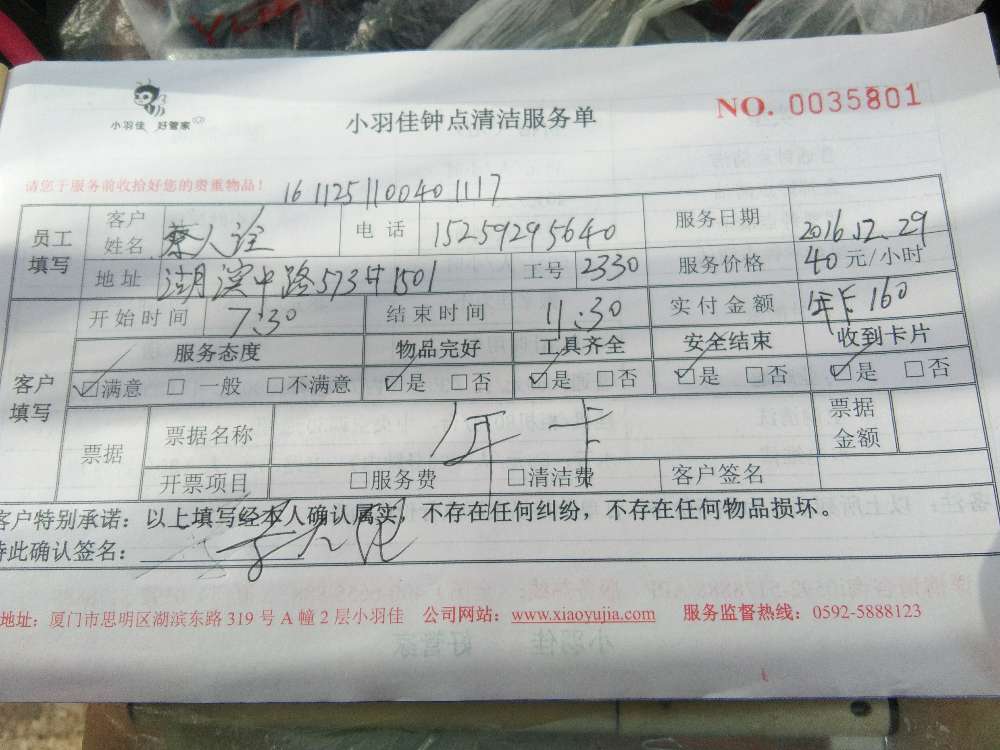 小羽佳 好管家
小羽佳钟点清洁服务单
NO. 0035801
请您于服务前收拾好您的贵重物品！
1611251100401117
员工填写 客户姓名 蔡人诠 电话 15259295640 服务日期 2016.12.29
地址 湖滨中路573#1501 工号 2330 服务价格 40元/小时
开始时间 7:30 结束时间 11:30 实付金额 年卡160
客户填写 服务态度 物品完好 工具齐全 安全结束 收到卡片
☑满意 □一般 □不满意 ☑是 □否 ☑是 □否 ☑是 □否 ☑是 □否
票据 票据名称 年卡 票据金额
开票项目 □服务费 □清洁费 客户签名
客户特别承诺：以上填写经本人确认属实，不存在任何纠纷，不存在任何物品损坏。
特此确认签名：
地址：厦门市思明区湖滨东路 319 号 A 幢 2 层小羽佳 公司网站：www.xiaoyujia.com 服务监督热线：0592-5888123